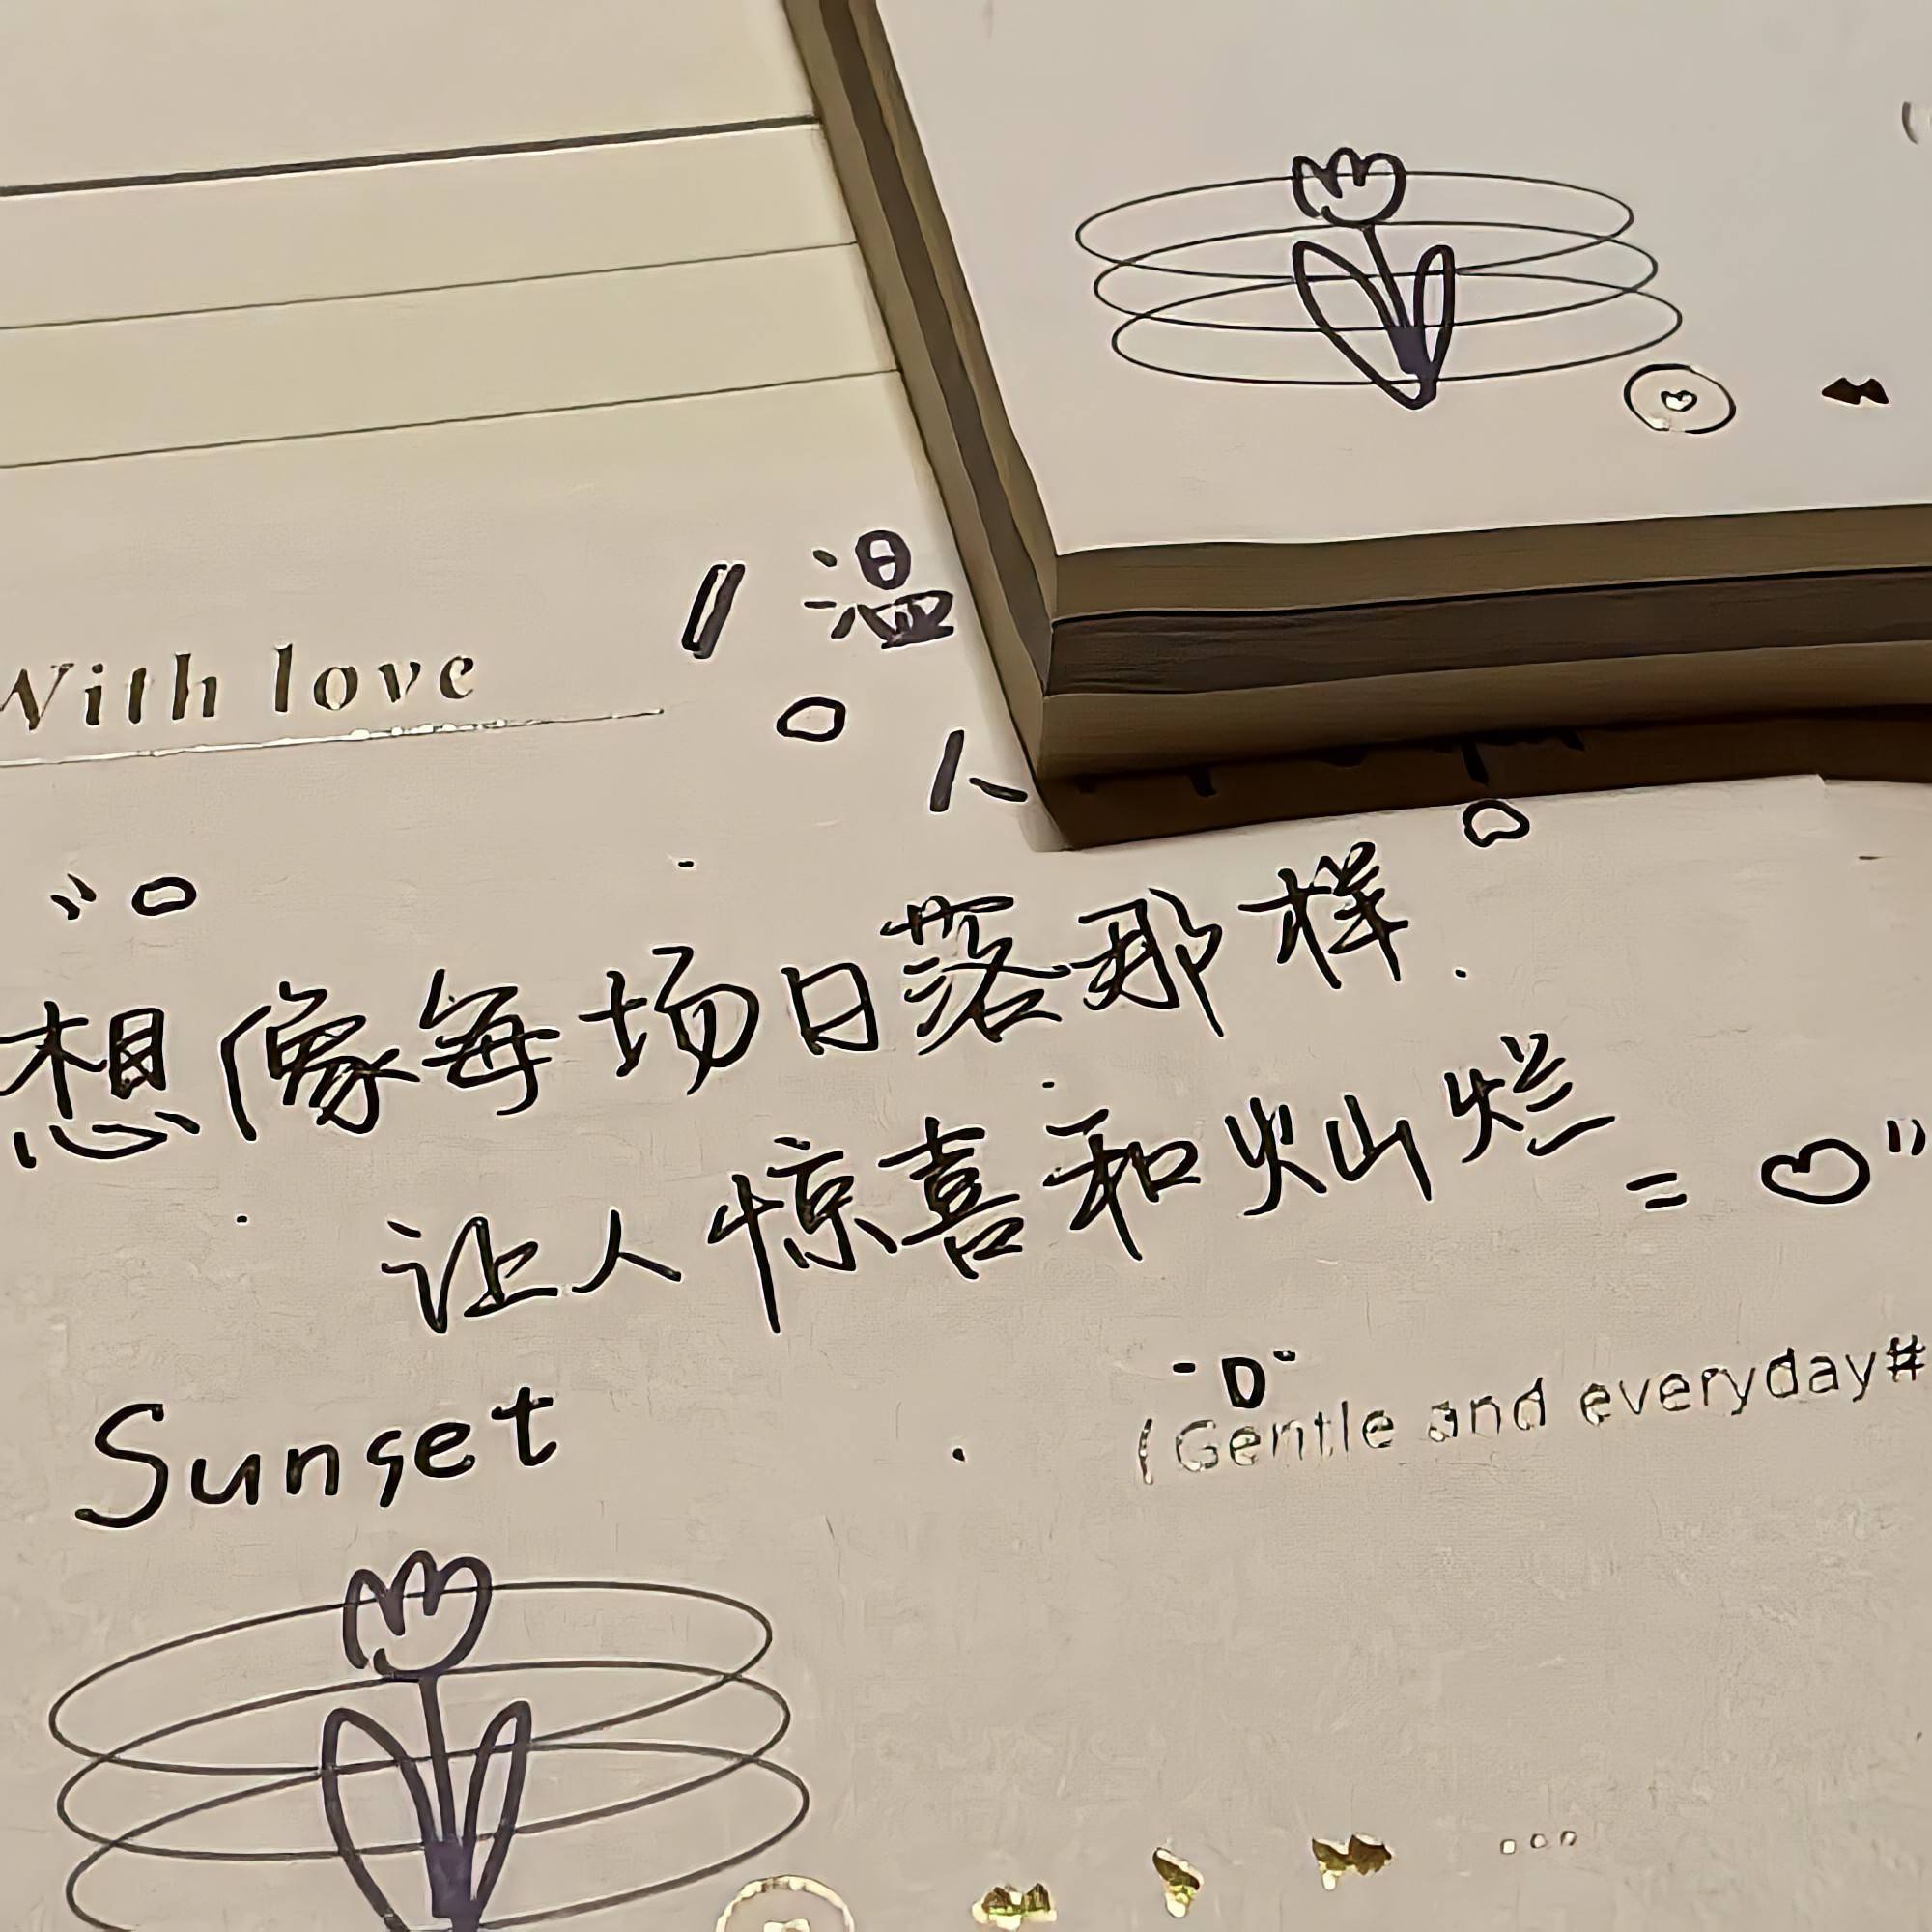 With love
温
人
想像每场日落那样.
让人惊喜和灿烂
Sunset
(Gentle and everyday#